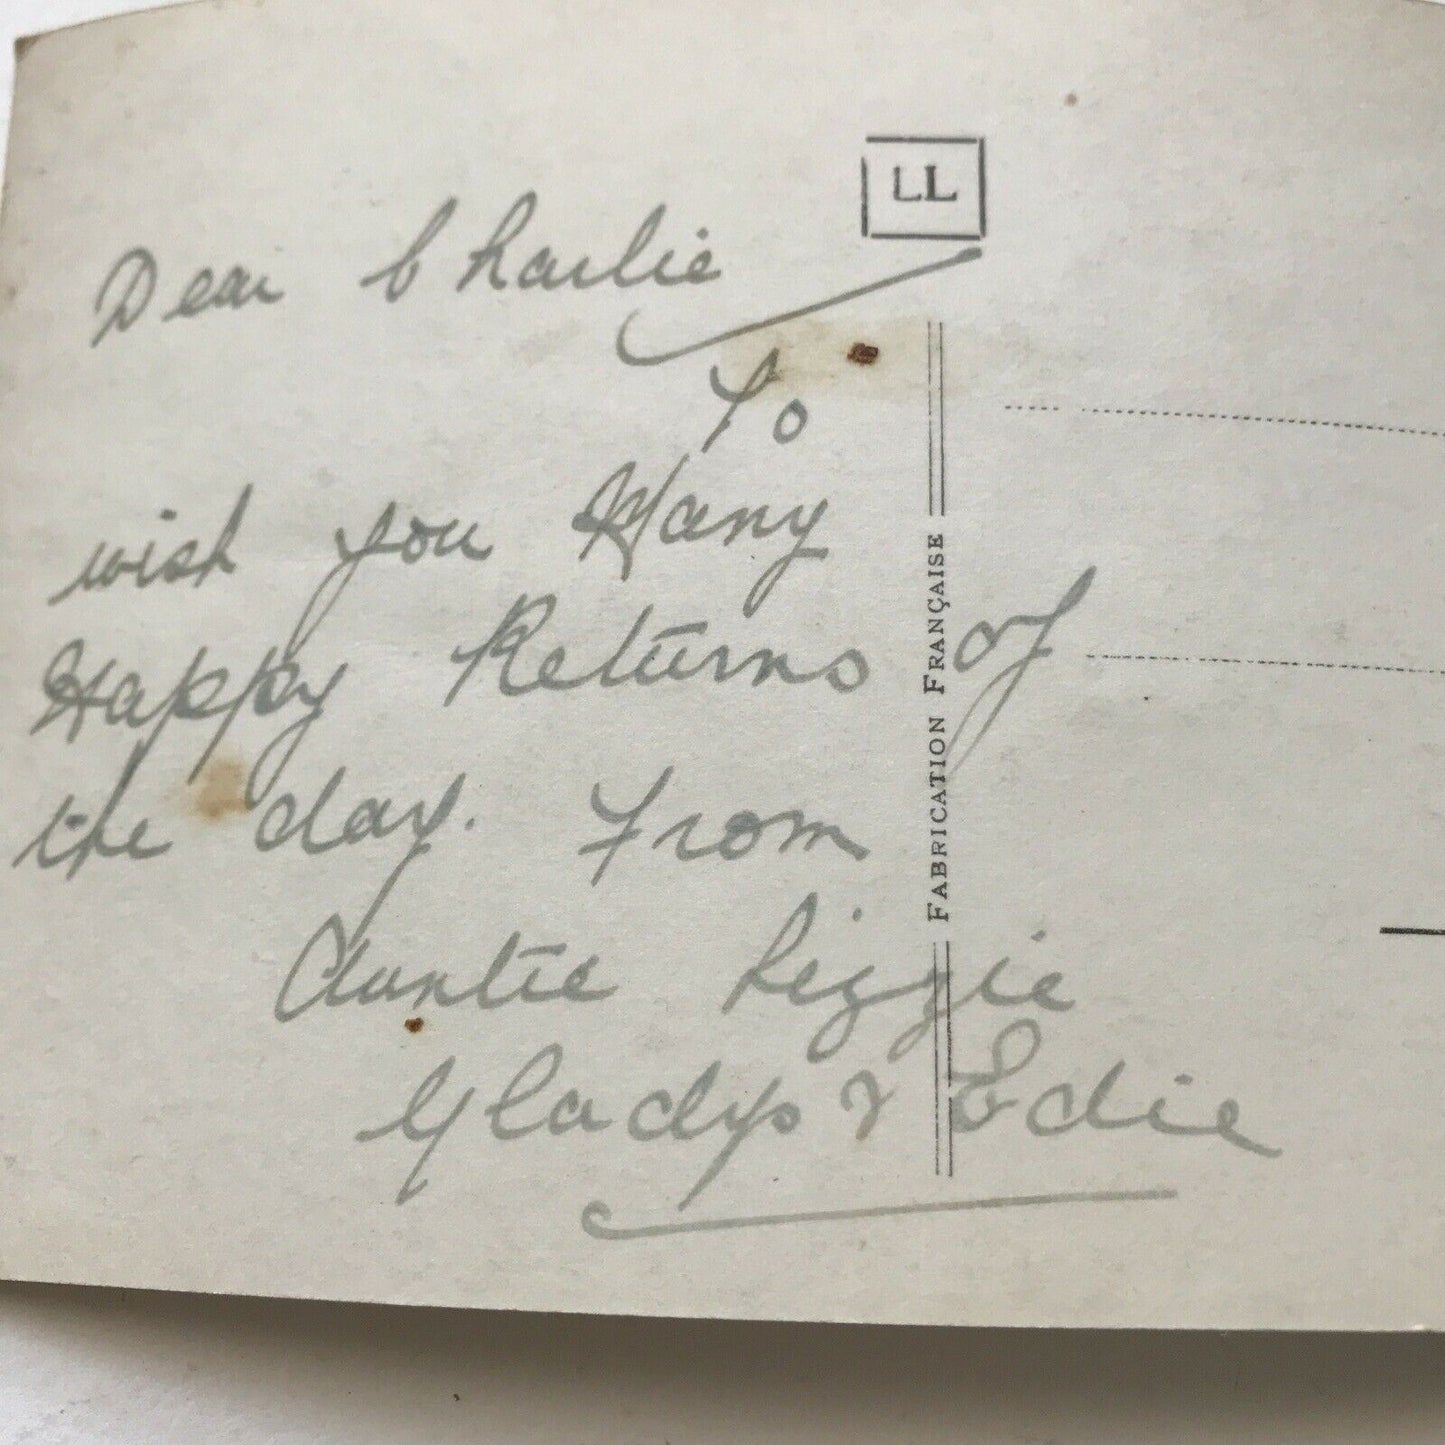 LL
Dear Charlie
To
wish you Many
Happy Returns of
the day. From
Auntie Lizzie
Gladys & Edie
FABRICATION FRANÇAISE